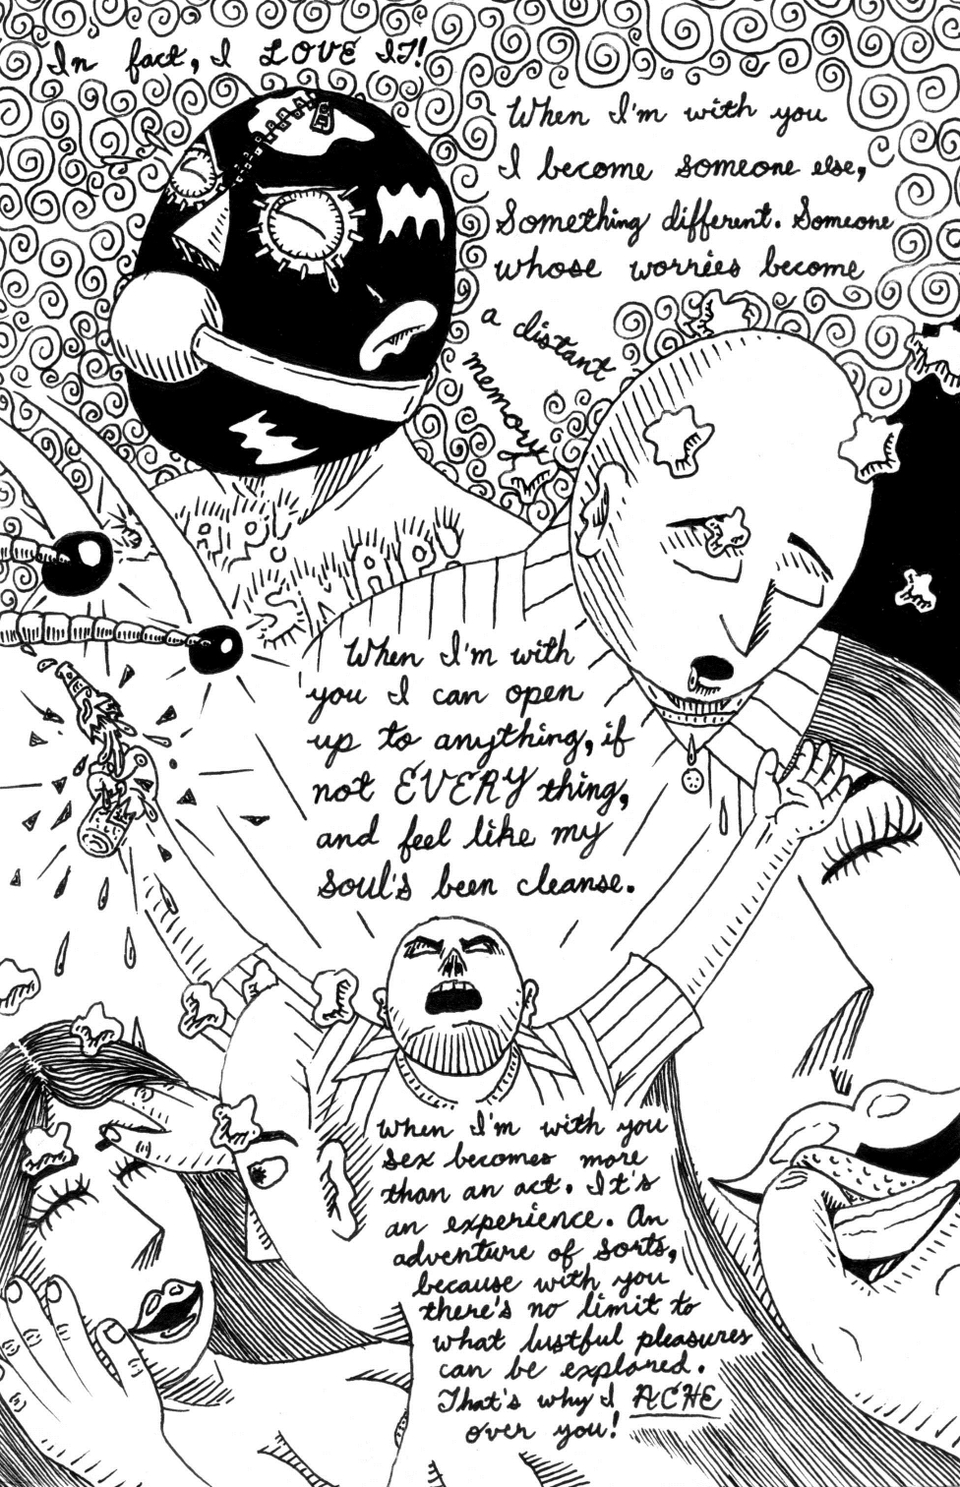 In fact, I LOVE IT!
When I'm with you
I become someone else,
Something different. Someone
whose worries become
a distant
memory
RIP!
SNAP!
When I'm with
you I can open
up to anything, if
not EVERY thing,
and feel like my
soul's been cleanse.
When I'm with you
sex becomes more
than an act. It's
an experience. An
adventure of sorts,
because with you
there's no limit to
what lustful pleasures
can be explored.
That's why I ACHE
over you!